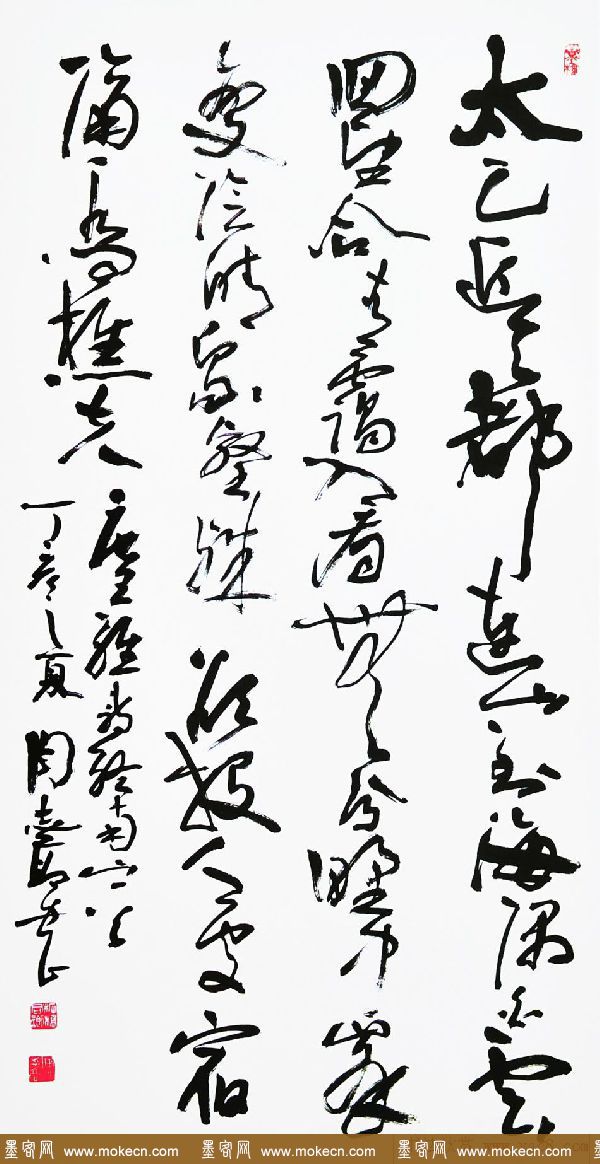 太乙近天都連山到海隅白雲
回望合青靄入看無分野中峯
變陰晴衆壑殊欲投人處宿
隔水問樵夫
王維終南山
丁亥之夏 陶
墨客网 www.mokecn.com 墨客网 www.mokecn.com 墨客网 www.mokecn.com